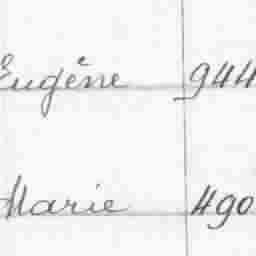 Eugène 944
Marie 490